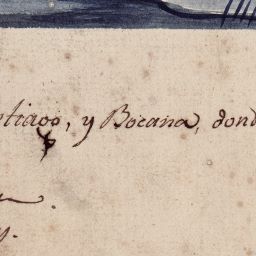 ntiago, y Bocana, dond